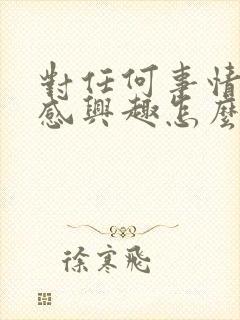 對任何事情
感興趣怎麼
徐寒飛